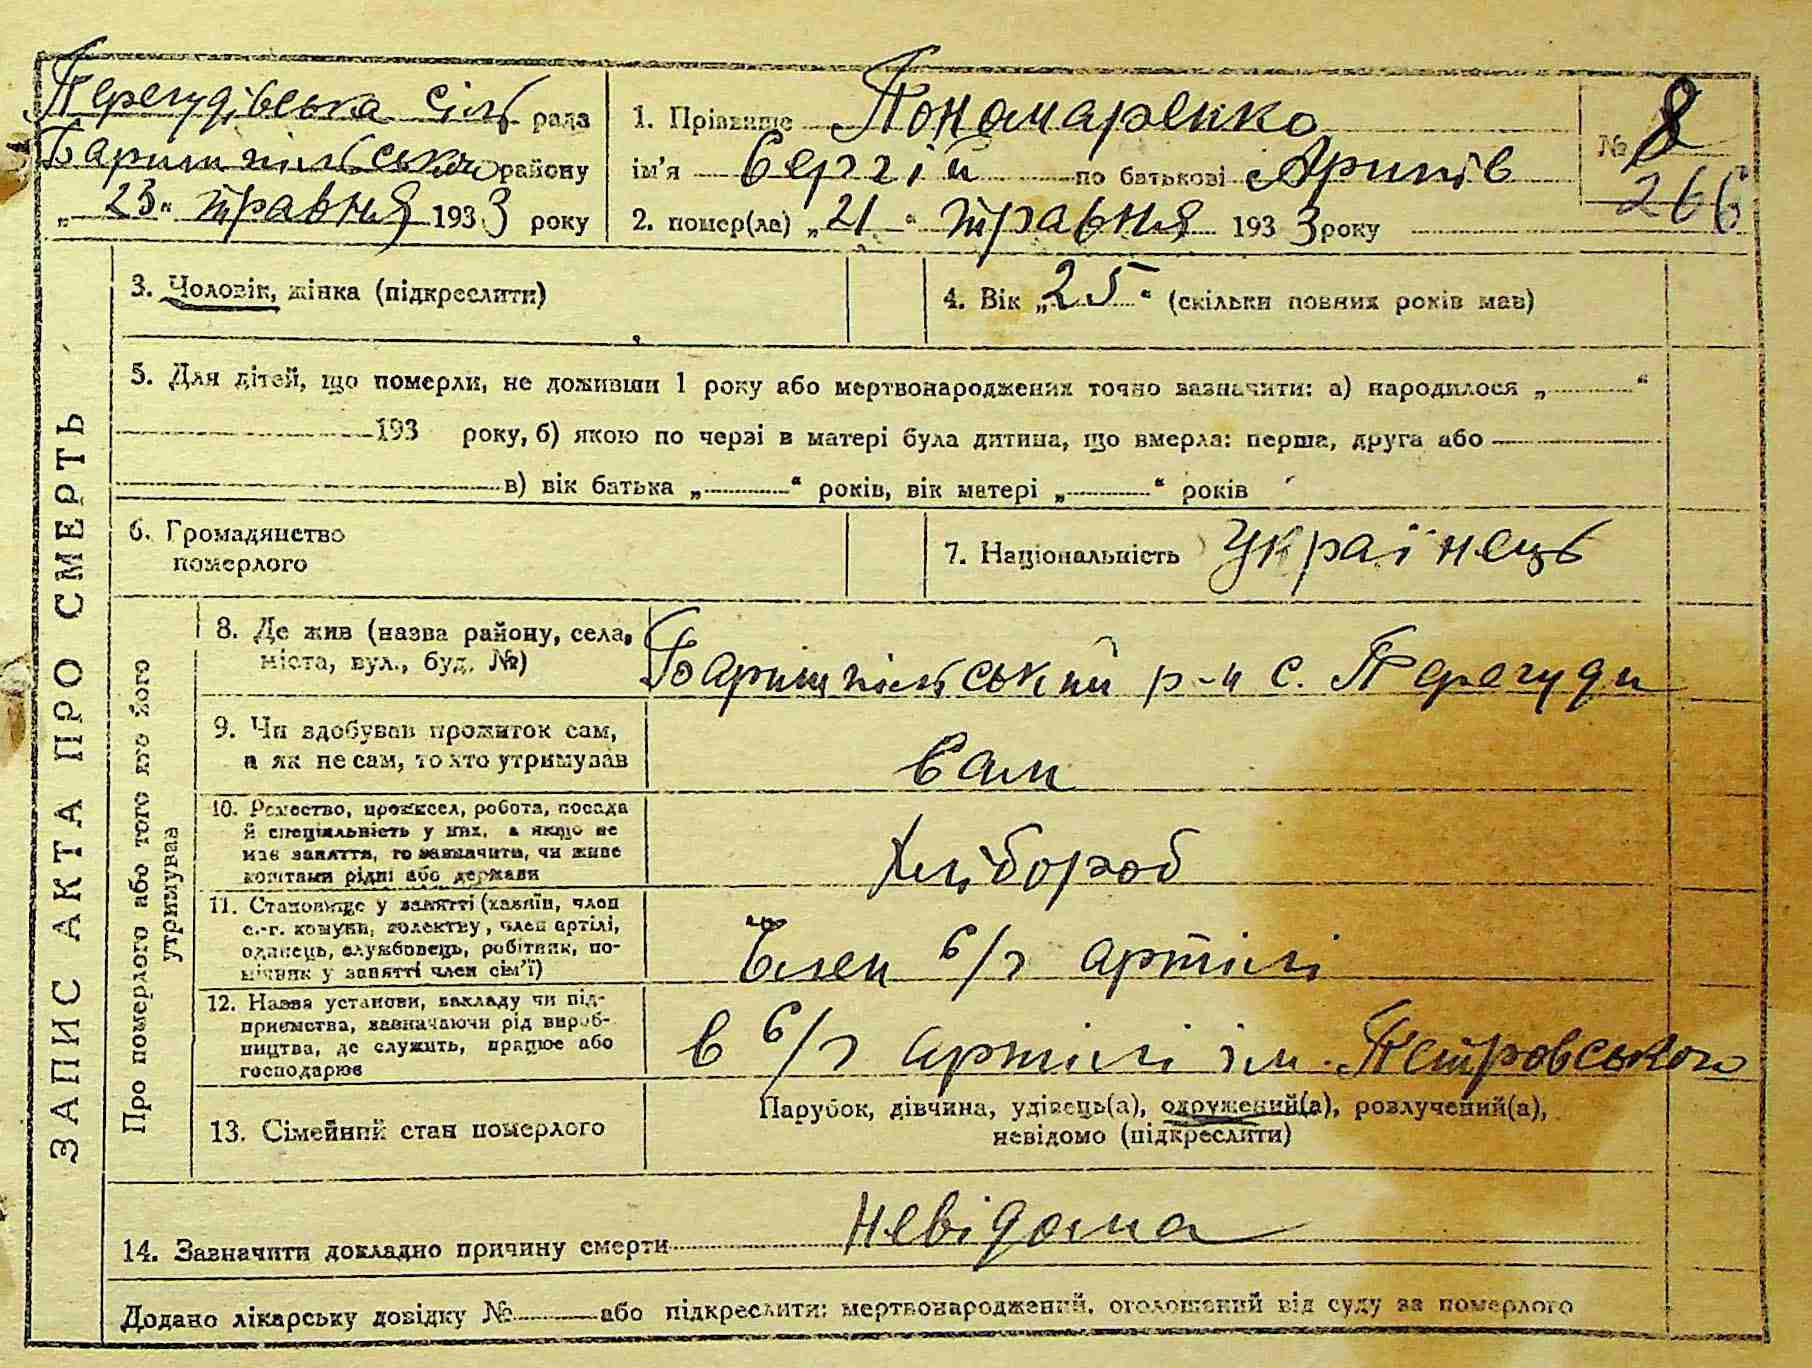 Перегудівська сіль рада
Баришпільського району
„ 23 “ травня 1933 року
1. Прізвище Пономаренко
ім'я Сергій по батькові Архипів
2. помер(ла) „ 21 “ травня 1933 року
№ 8
266
ЗАПИС АКТА ПРО СМЕРТЬ
3. Чоловік, жінка (підкреслити)
4. Вік „ 25 “ (скільки повних років мав)
5. Для дітей, що померли, не доживши 1 року або мертвонароджених точно зазначити: а) народилося „ “
193 року, б) якою по черзі в матері була дитина, що вмерла: перша, друга або
в) вік батька „ “ років, вік матері „ “ років
6. Громадянство
померлого
7. Національність Українець
Про померлого або того хто його
утримував
8. Де жив (назва району, села,
міста, вул., буд. №)
Баришпільський р-н с. Перегуди
9. Чи здобував прожиток сам,
а як не сам, то хто утримував
Сам
10. Ремество, промисел, робота, посада
й спеціяльність у них, а якщо не
має заняття, то зазначити, чи живе
коштами рідні або держави
Хлібороб
11. Становище у занятті (хазяїн, член
с.-г. комуни, колективу, член артілі,
одинець, службовець, робітник, по-
мічник у занятті член сім'ї)
Член с/г артілі
12. Назва установи, закладу чи під-
приємства, зазначаючи рід вироб-
ництва, де служить, працює або
господарює
В с/г артілі ім. Петровського
13. Сімейний стан померлого
Парубок, дівчина, удівець(а), одружений(а), розлучений(а),
невідомо (підкреслити)
14. Зазначити докладно причину смерти Невідома
Додано лікарську довідку № або підкреслити: мертвонароджений, оголошений від суду за померлого